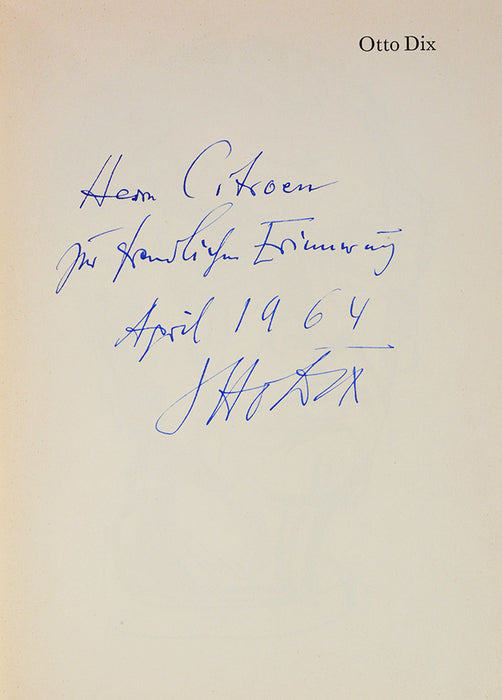 Otto Dix
Herrn Citroen
zur freundlichen Erinnerung
April 1964
Otto Dix